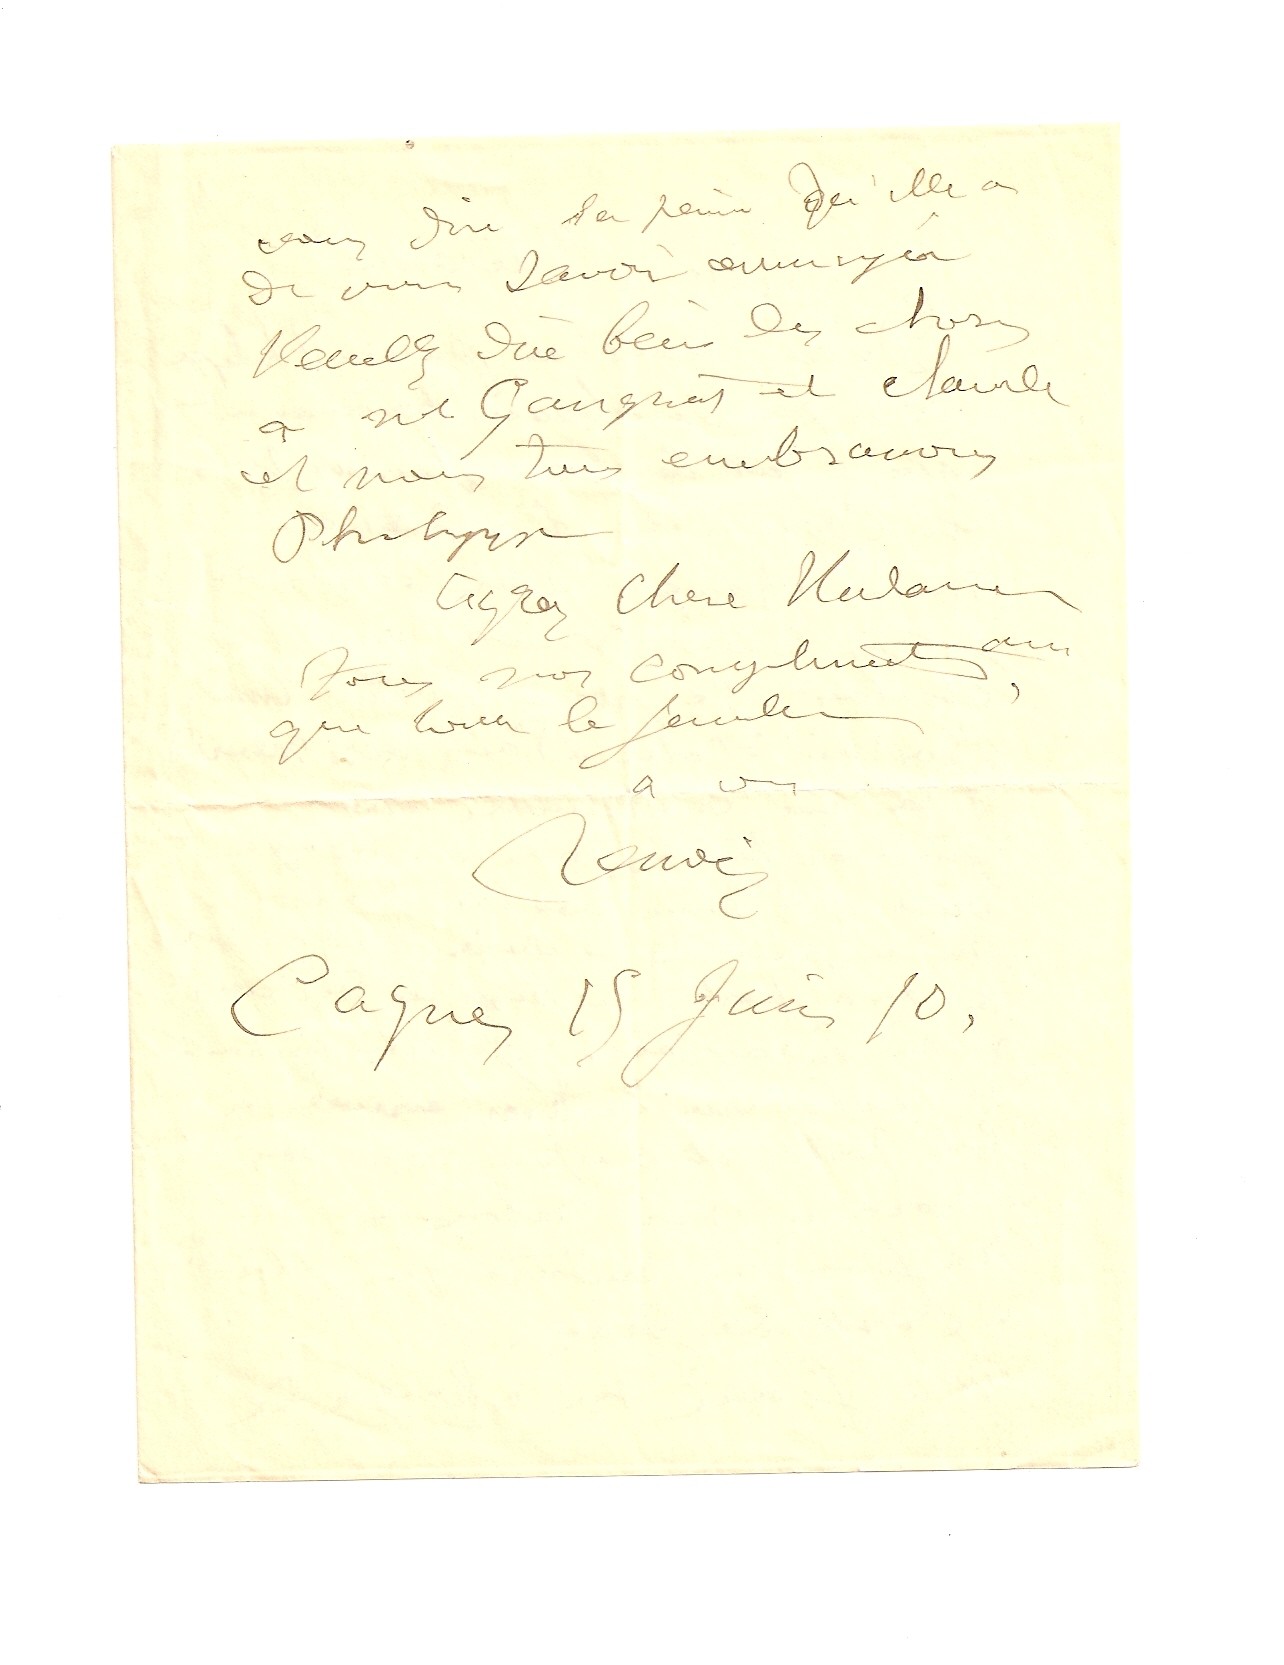 vous dire la peine qu'elle a
de vous savoir ennuyée
Veuillez dire bien des choses
a Mr Gangnat et Claude
et nous tous embrassons
Philippe
agréez chere Madame
tous nos compliments ainsi
que toute la famille
a vous
Renoir
Cagnes 15 Juin 10.